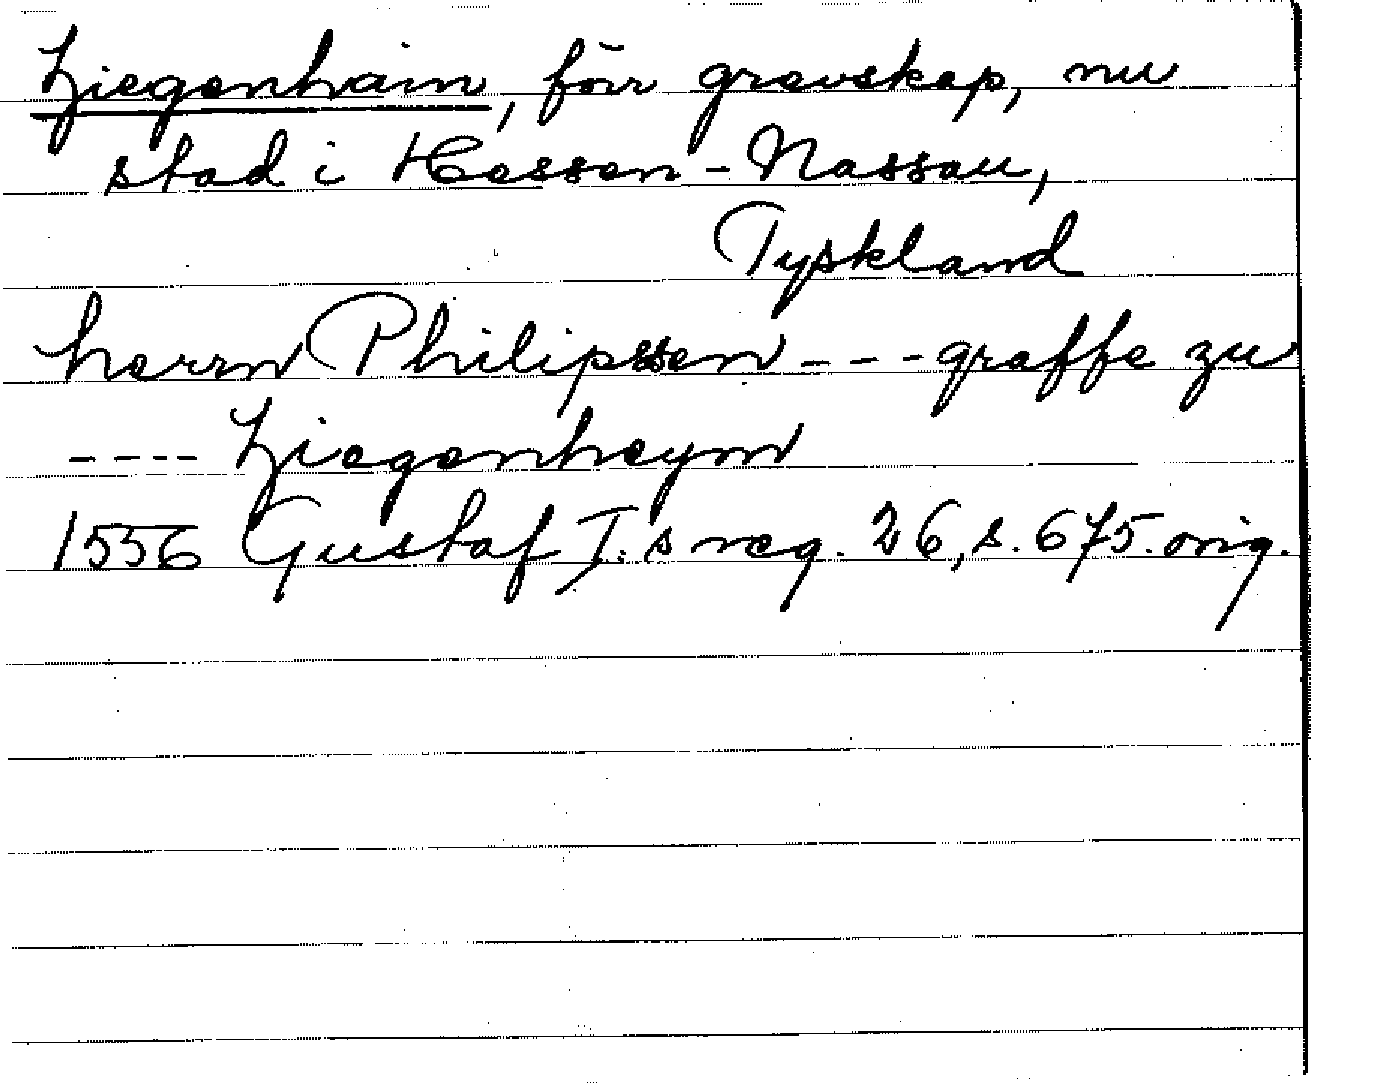 Ziegenhain, förr grevskap, nu
stad i Hessen-Nassau,
Tyskland
herrn Philipssen --- graffe zu
---- Ziegenheym
1556 Gustaf I:s reg. 26, s. 675. orig.